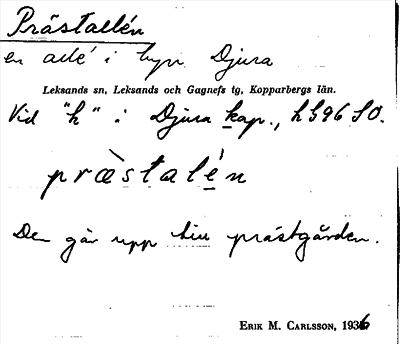 Prästallén
en allé i byn Djura
Leksands sn, Leksands och Gagnefs tg, Kopparbergs län.
Vid "h" i Djura kap., h 596 SO.
præ̀stalén
Den går upp till prästgården.
ERIK M. CARLSSON, 1936